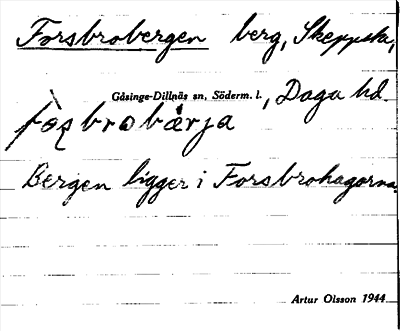 Forsbrobergen berg, Skeppsta,
Gåsinge-Dillnäs sn, Söderm. l., Daga hd.
fòs̩brobàrja
Bergen ligger i Forsbrohagarna.
Artur Olsson 1944